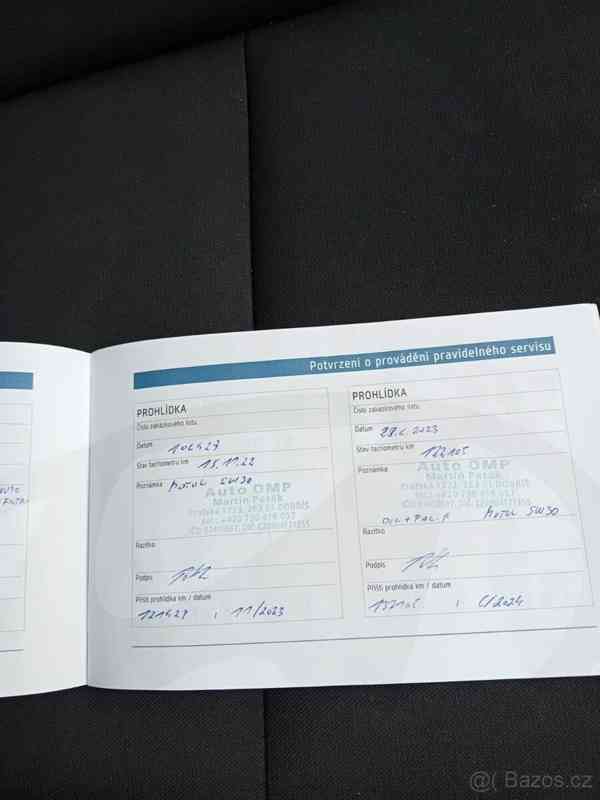 Potvrzení o provádění pravidelného servisu
PROHLÍDKA
Číslo zakázkového listu
Datum 106427
Stav tachometru km 15.11.22
Poznámka MOTUL 5W30
Auto OMP
Martin Paták
Razítko
Podpis
Příští prohlídka km / datum
121427 , 11/2023
PROHLÍDKA
Číslo zakázkového listu
Datum 28.6.2023
Stav tachometru km 122105
Poznámka
Auto OMP
Martin Paták
MOTUL 5W30
Razítko
Podpis
Příští prohlídka km / datum
137105 , 6/2024
@( Bazos.cz